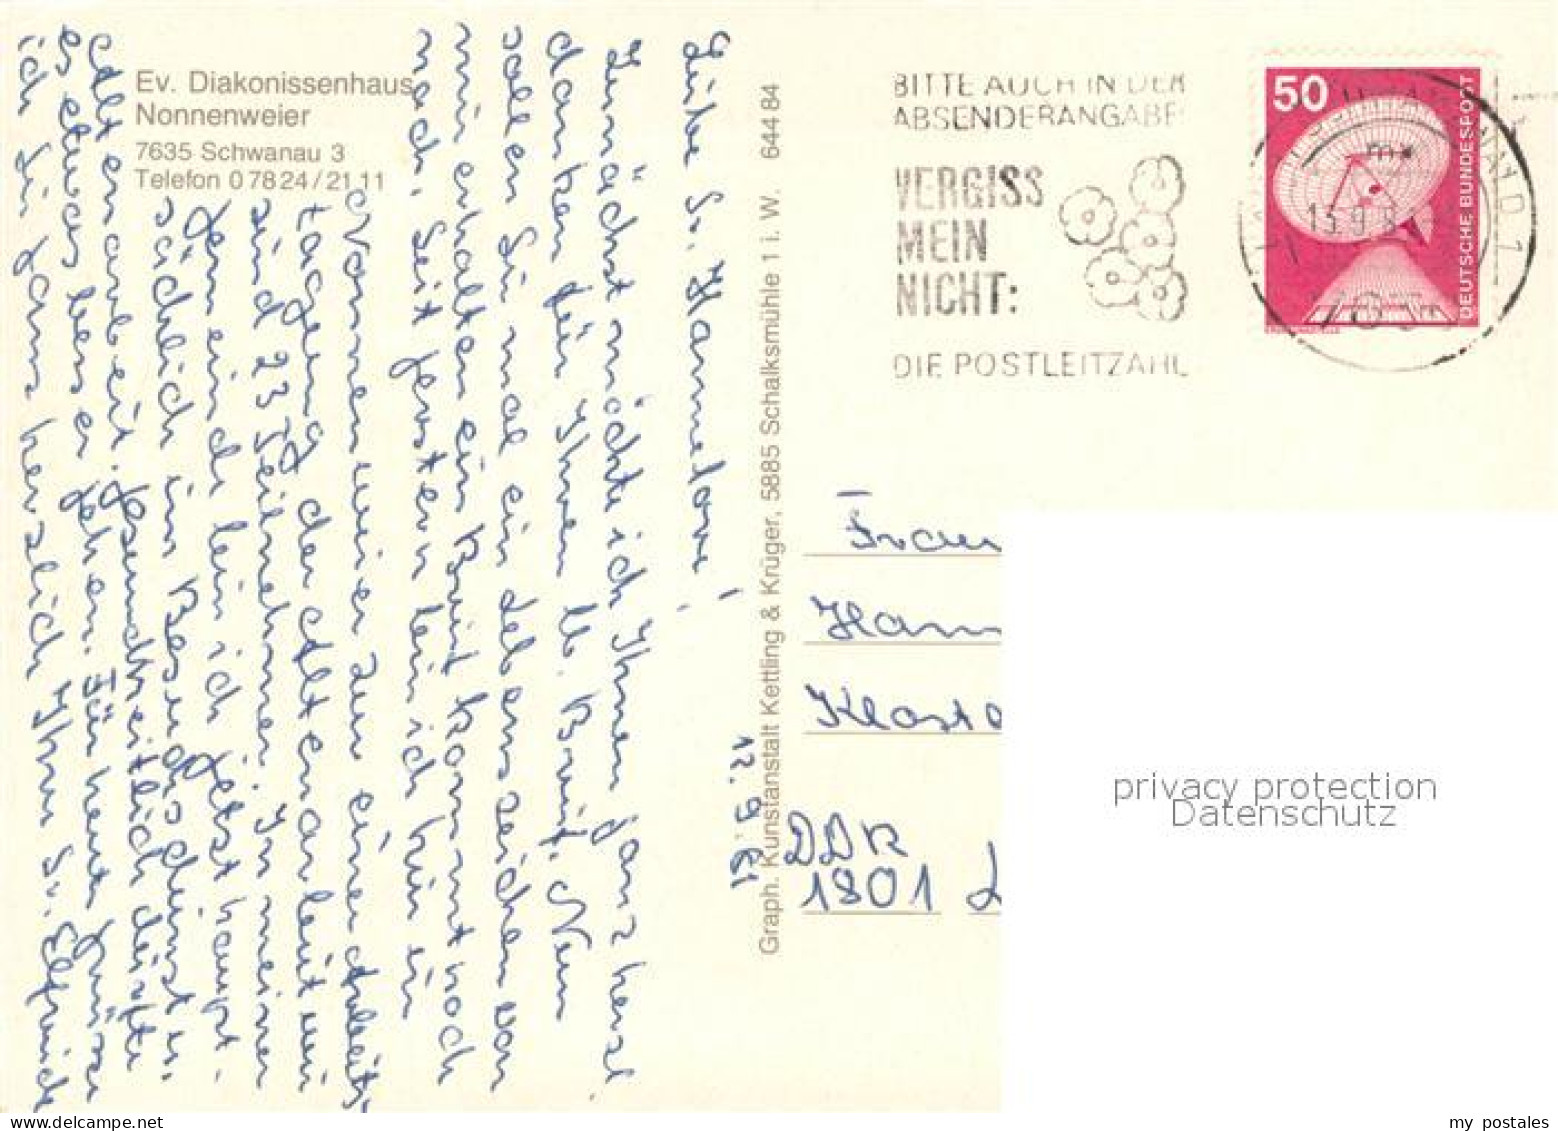 Ev. Diakonissenhaus
Nonnenweier
7635 Schwanau 3
Telefon 07824/2111
BITTE AUCH IN DER
ABSENDERANGABE:
VERGISS
MEIN
NICHT:
DIE POSTLEITZAHL
50
DEUTSCHE BUNDESPOST
13.9.8
Graph. Kunstanstalt Kettling & Krüger, 5885 Schalksmühle 1 i. W. 644 84
12. 9. 81
Liebe Sr. Hannelore!
Zunächst möchte ich Ihnen ganz herzl.
danken für Ihren lb. Brief. Nun
sollen Sie mal ein Lebenszeichen von
mir erhalten ein Brief kommt noch
nach. Seit gestern bin ich hier in
Nonnenweier zu einer Arbeits-
tagung der Altenarbeit wir
sind 23 Teilnehmer. In meiner
Gemeinde bin ich jetzt haupt-
sächlich im Besuchsdienst u.
Altenarbeit. Gesundheitlich dürfte
es etwas besser gehen. Für heute grüsse
ich Sie ganz herzlich Ihre Sr. Elfriede
Frau
Hann
Kloste
DDR
1801 L
privacy protection
Datenschutz
my_postales